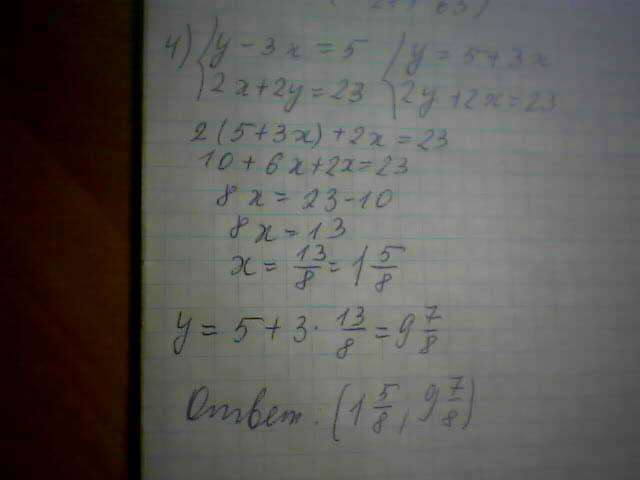 4) { y - 3x = 5 { y = 5 + 3x
2x + 2y = 23 2y + 2x = 23
2(5 + 3x) + 2x = 23
10 + 6x + 2x = 23
8x = 23 - 10
8x = 13
x = 13/8 = 1 5/8
y = 5 + 3 · 13/8 = 9 7/8
Ответ: (1 5/8, 9 7/8)